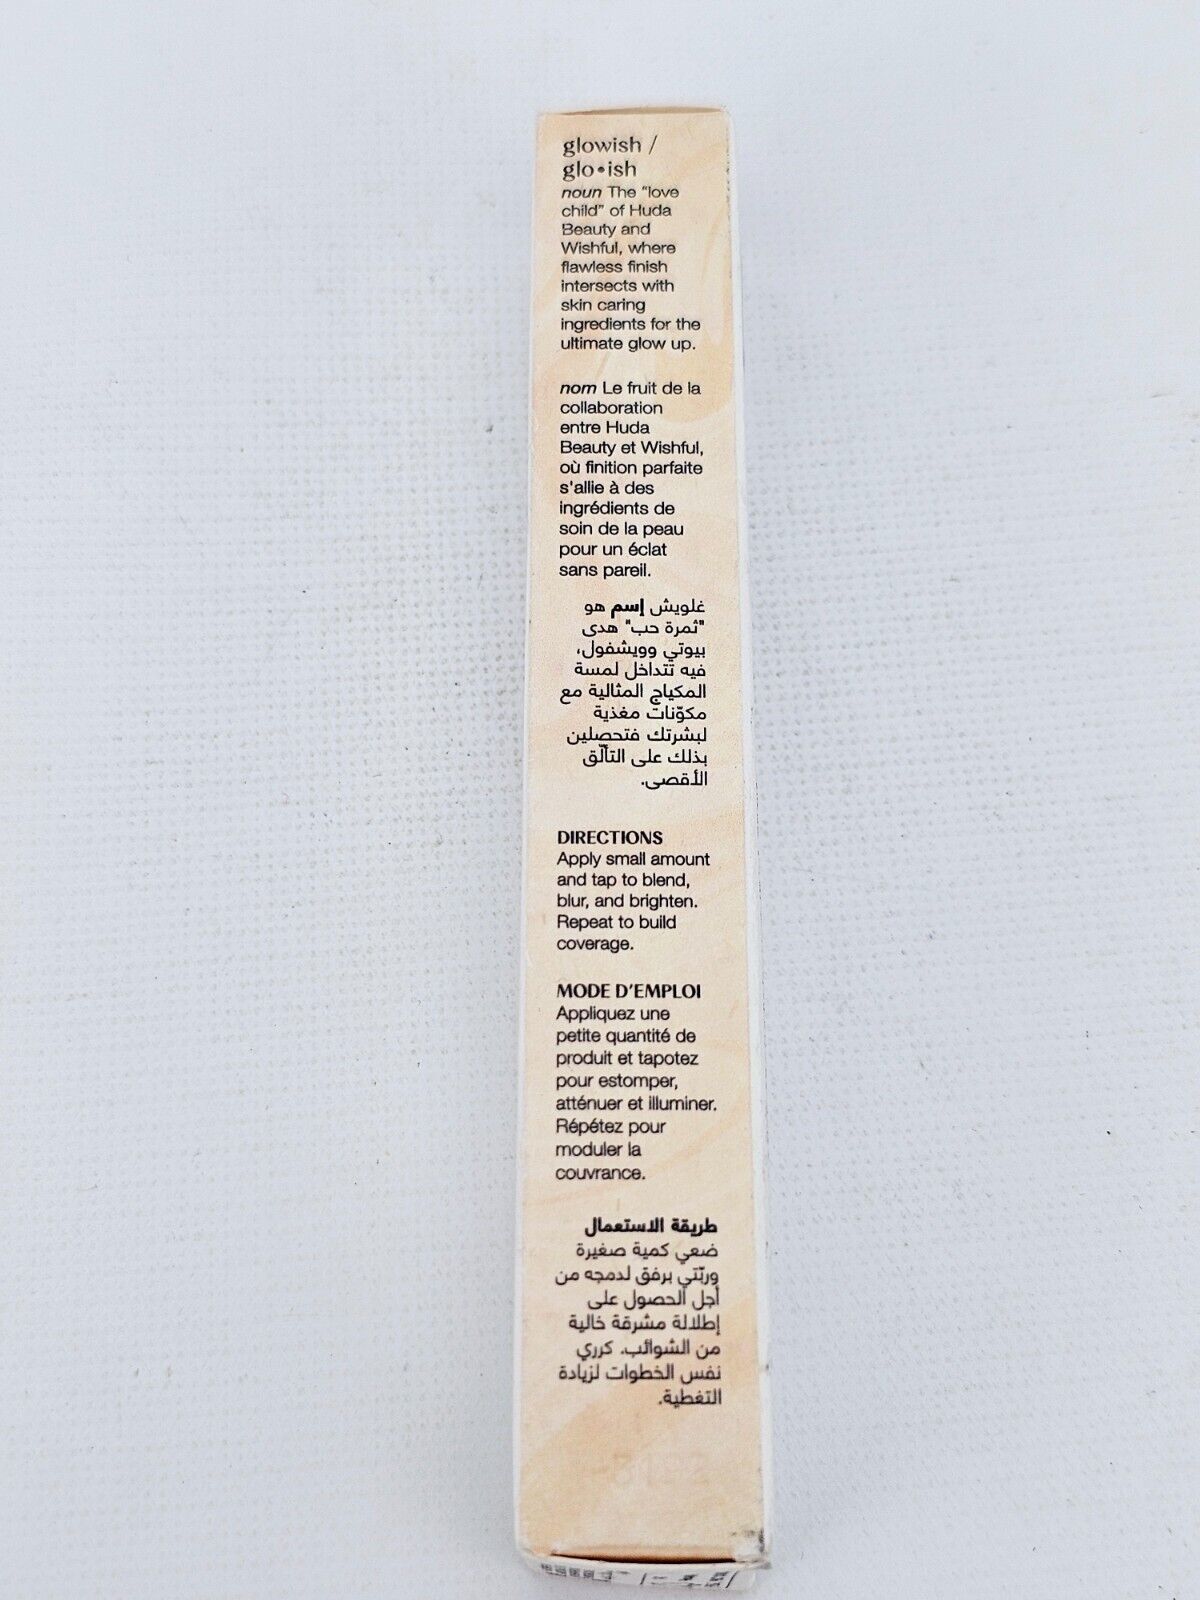 glowish /
glo•ish
noun The "love
child" of Huda
Beauty and
Wishful, where
flawless finish
intersects with
skin caring
ingredients for the
ultimate glow up.
nom Le fruit de la
collaboration
entre Huda
Beauty et Wishful,
où finition parfaite
s'allie à des
ingrédients de
soin de la peau
pour un éclat
sans pareil.
غلويش إسم هو
"ثمرة حب" هدى
بيوتي وويشفول،
فيه تتداخل لمسة
المكياج المثالية مع
مكوّنات مغذية
لبشرتك فتحصلين
بذلك على التألّق
الأقصى.
DIRECTIONS
Apply small amount
and tap to blend,
blur, and brighten.
Repeat to build
coverage.
MODE D'EMPLOI
Appliquez une
petite quantité de
produit et tapotez
pour estomper,
atténuer et illuminer.
Répétez pour
moduler la
couvrance.
طريقة الاستعمال
ضعي كمية صغيرة
وربّتي برفق لدمجه من
أجل الحصول على
إطلالة مشرقة خالية
من الشوائب. كرري
نفس الخطوات لزيادة
التغطية.